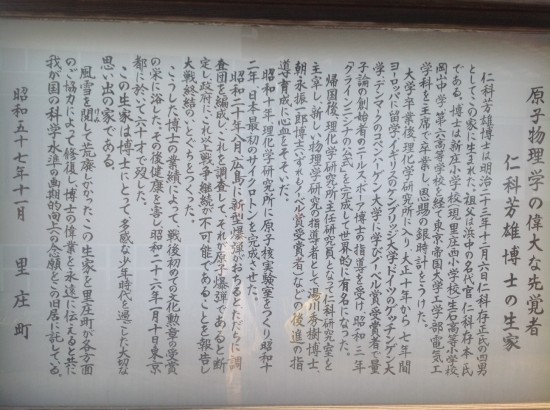 原子物理学の偉大な先覚者
仁科芳雄博士の生家
仁科芳雄博士は明治二十三年十二月六日仁科存正氏の四男
としてこの家に生まれた。祖父は浜中の名代官 仁科存本氏
である。博士は新庄小学校(現、里庄西小学校)生石高等小学校、
岡山中学、第六高等学校を経て東京帝国大学工学部電気工
学科を主席で卒業し、恩賜の銀時計をうけた。
大学卒業後、理化学研究所に入り、大正十年から七年間
ヨーロッパに留学、イギリスのケンブリッジ大学、ドイツのゲッチンゲン大
学、デンマークのコペンハーゲン大学に学び、ノーベル賞受賞者で量
子論の創始者のニールス・ボーア博士の指導を受け、昭和三年
「クライン=ニシナの公式」を完成して世界的に有名になった。
帰国後、理化学研究所主任研究員となって仁科研究室を
主宰し、新しい物理学研究の指導者として湯川秀樹博士、
朝永振一郎博士(いずれもノーベル賞受賞者)などの後進の指
導育成に心血をそそいだ。
昭和十年、理化学研究所に原子核実験室をつくり昭和十
二年、日本最初のサイクロトロンを完成させた。
昭和二十年八月、広島に新型爆弾がおちるとただちに調
査団を編成し、これを調査して、それが原子爆弾であると断
定し、政府にこれ以上戦争継続が不可能であることを報告し
大戦終結のいとぐちをつくった。
こうした博士の業績によって、戦後初めての文化勲章の受賞
の栄に浴した。その後健康を害し昭和二十六年一月十日東京
都に於いて六十才で歿した。
この生家は博士にとって、多感な少年時代を過ごした大切な
思い出の家である。
風雪を閲して荒廃しかかった、この生家を里庄町が各方面
のご協力によって修復し、博士の偉業を永遠に伝えると共に
我が国の科学水準の画期的向上の念願をこの旧居に託してる。
昭和五十七年十一月 里庄町